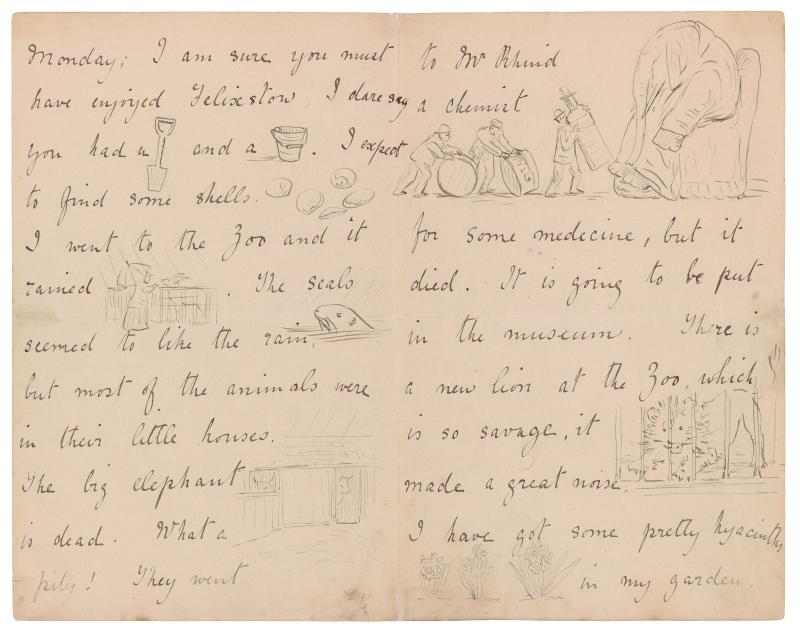 Monday; I am sure you must
have enjoyed Felixstow, I dare say
you had a and a . I expect
to find some shells.
I went to the Zoo and it
rained . The seals
seemed to like the rain,
but most of the animals were
in their little houses.
The big elephant
is dead. What a
pity! They went
to Mr
a chemist
PILLS
for some medecine, but it
died. It is going to be put
in the museum. There is
a new lion at the Zoo, which
is so savage, it
made a great noise.
I have got some pretty hyacinths
in my garden.